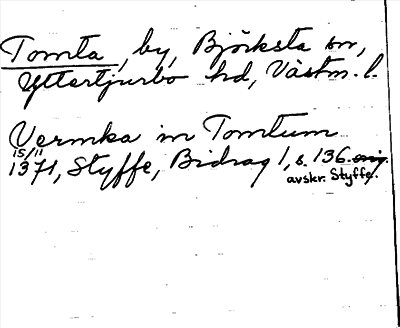 Tomta, by, Björksta sn,
Yttertjurbo hd, Västm. l.
Vermka in Tomtum
15/11
1371, Styffe, Bidrag 1, s. 136. orig.
avskr. Styffe.